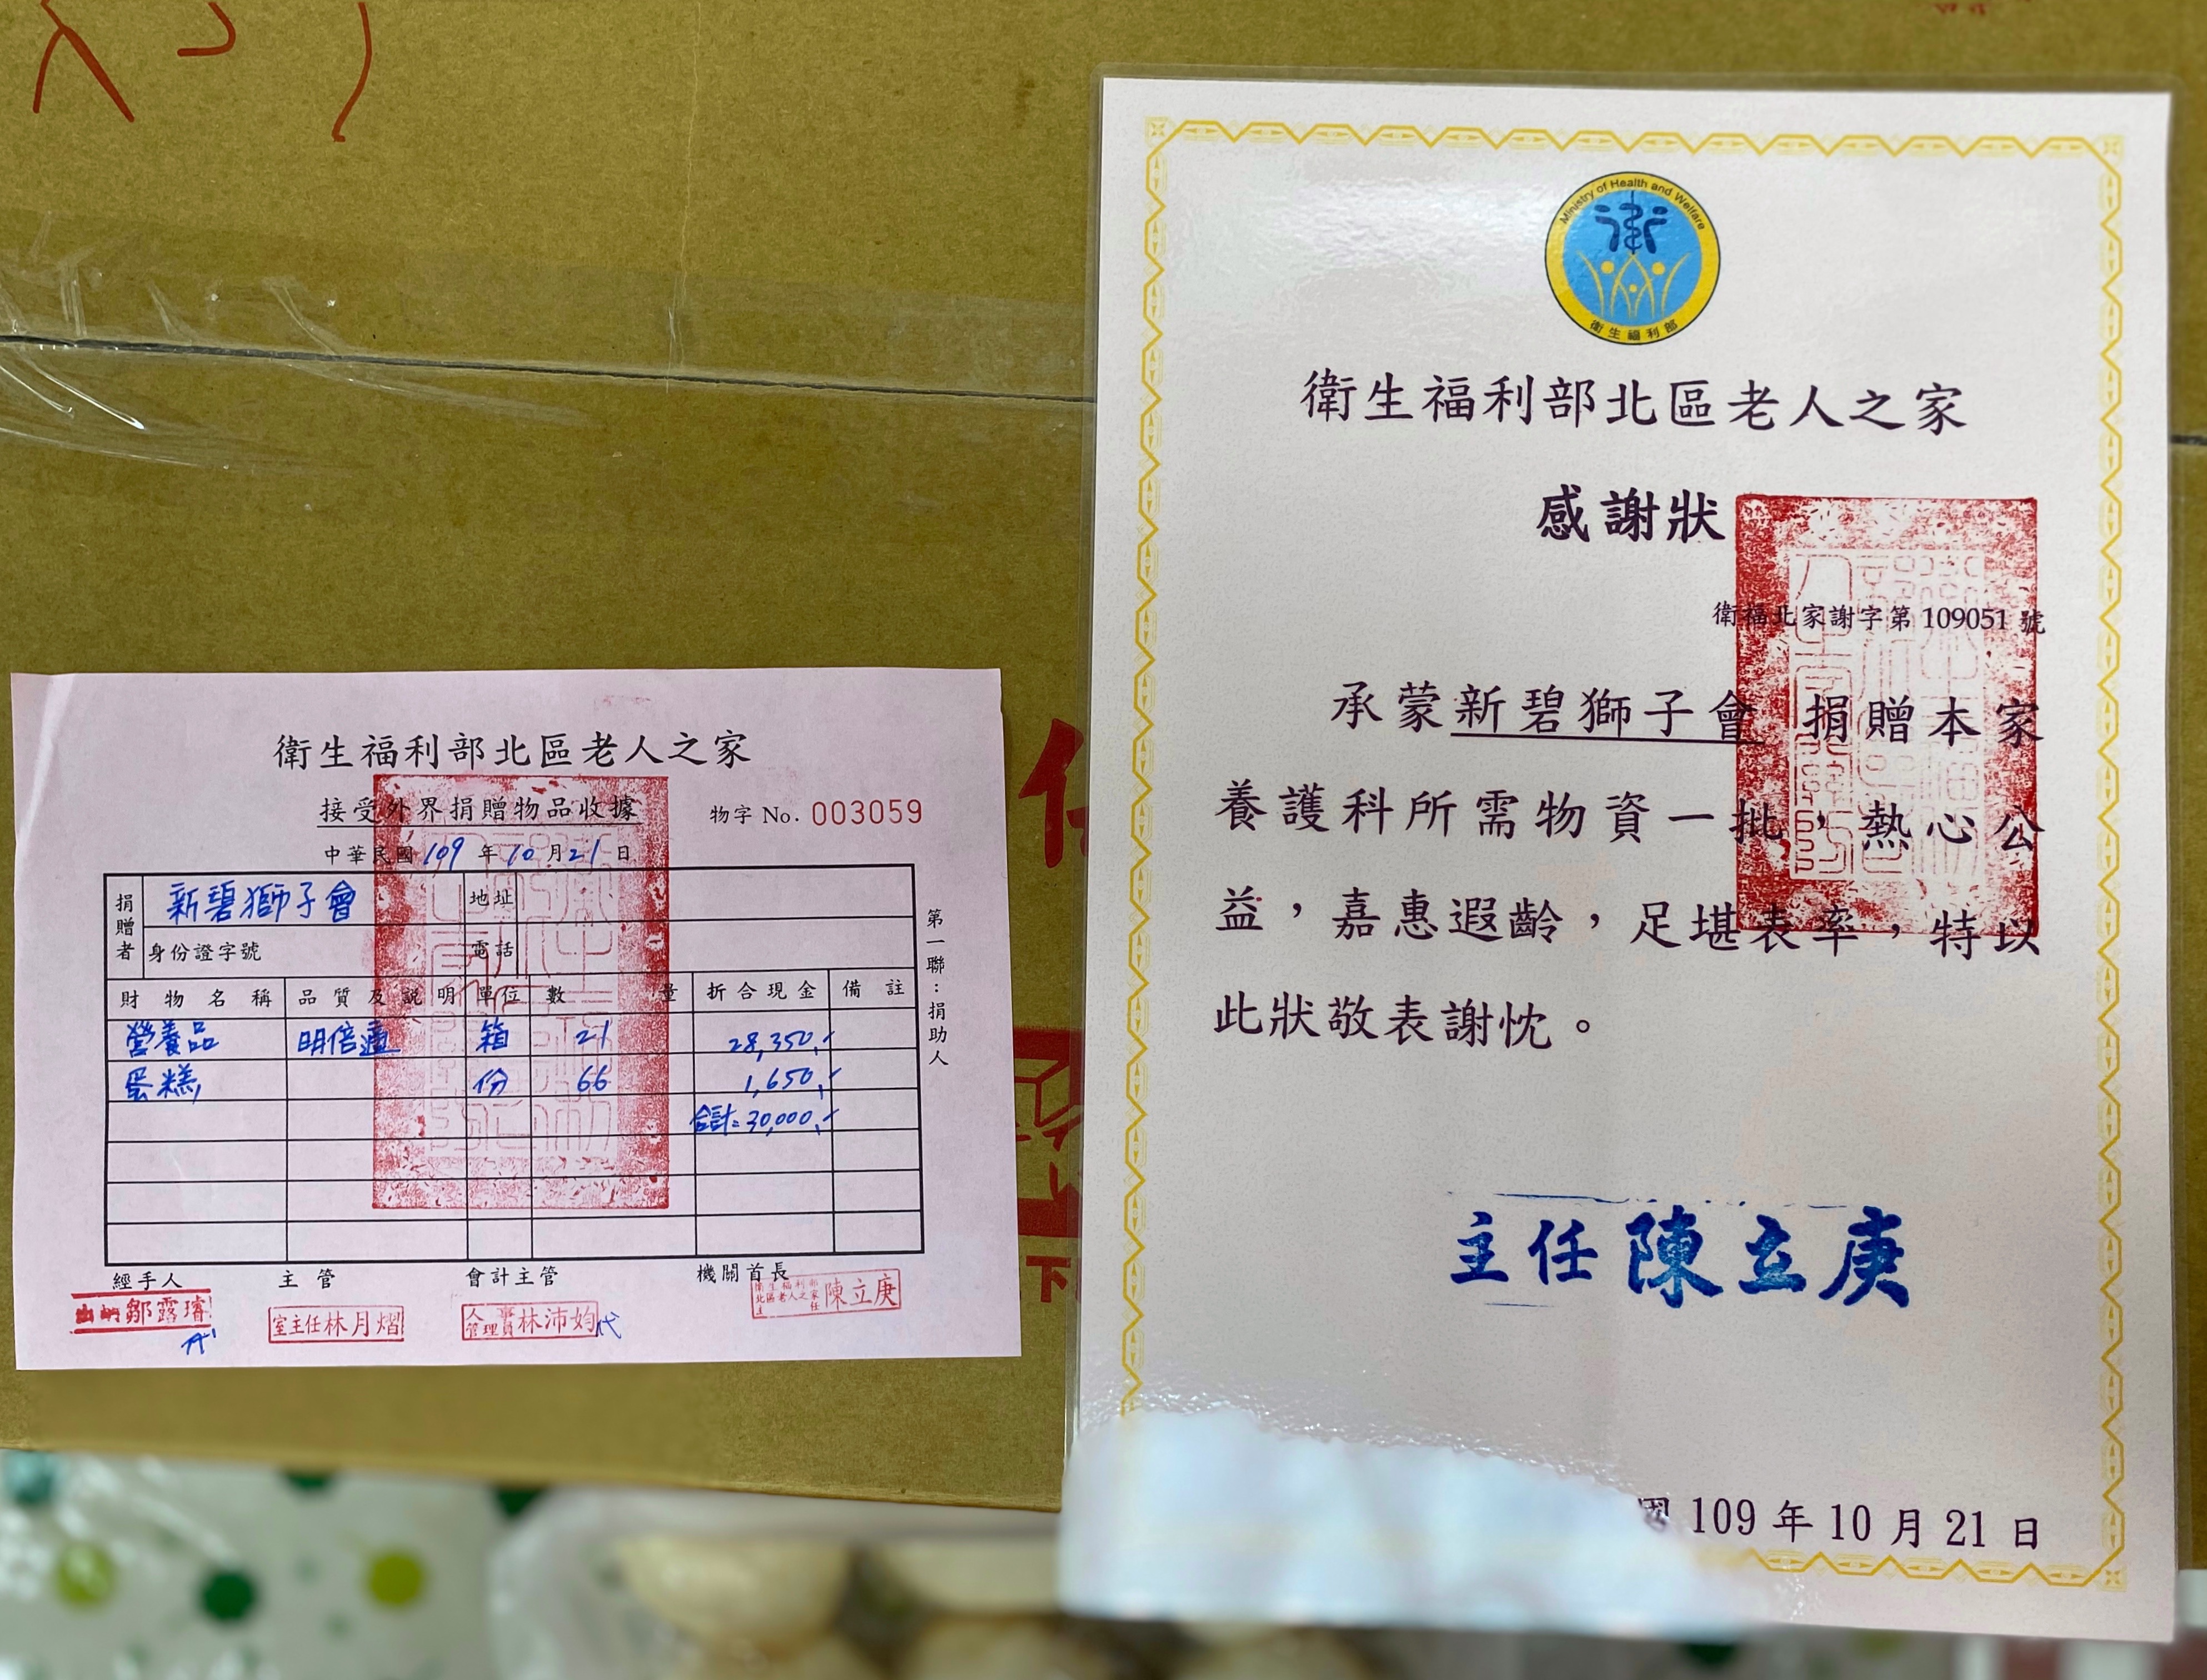 衛生福利部北區老人之家
接受外界捐贈物品收據
物字 No. 003059
中華民國 109 年 10 月 21 日
捐贈者 新碧獅子會 地址
身份證字號 電話
財物名稱 品質及說明 單位 數量 折合現金 備註
營養品 明倍適 箱 21 28,350.-
蛋糕 份 66 1,650.-
合計=30,000.-
第一聯:捐助人
經手人 主管 會計主管 機關首長
出納鄒露璿
室主任林月熠
人事管理員林沛妁代
衛生福利部北區老人之家主任陳立庚
Ministry of Health and Welfare
衛生福利部
衛生福利部北區老人之家
感謝狀
衛福北家謝字第 109051 號
承蒙新碧獅子會 捐贈本家
養護科所需物資一批,熱心公
益,嘉惠遐齡,足堪表率,特以
此狀敬表謝忱。
主任 陳立庚
國 109 年 10 月 21 日
下